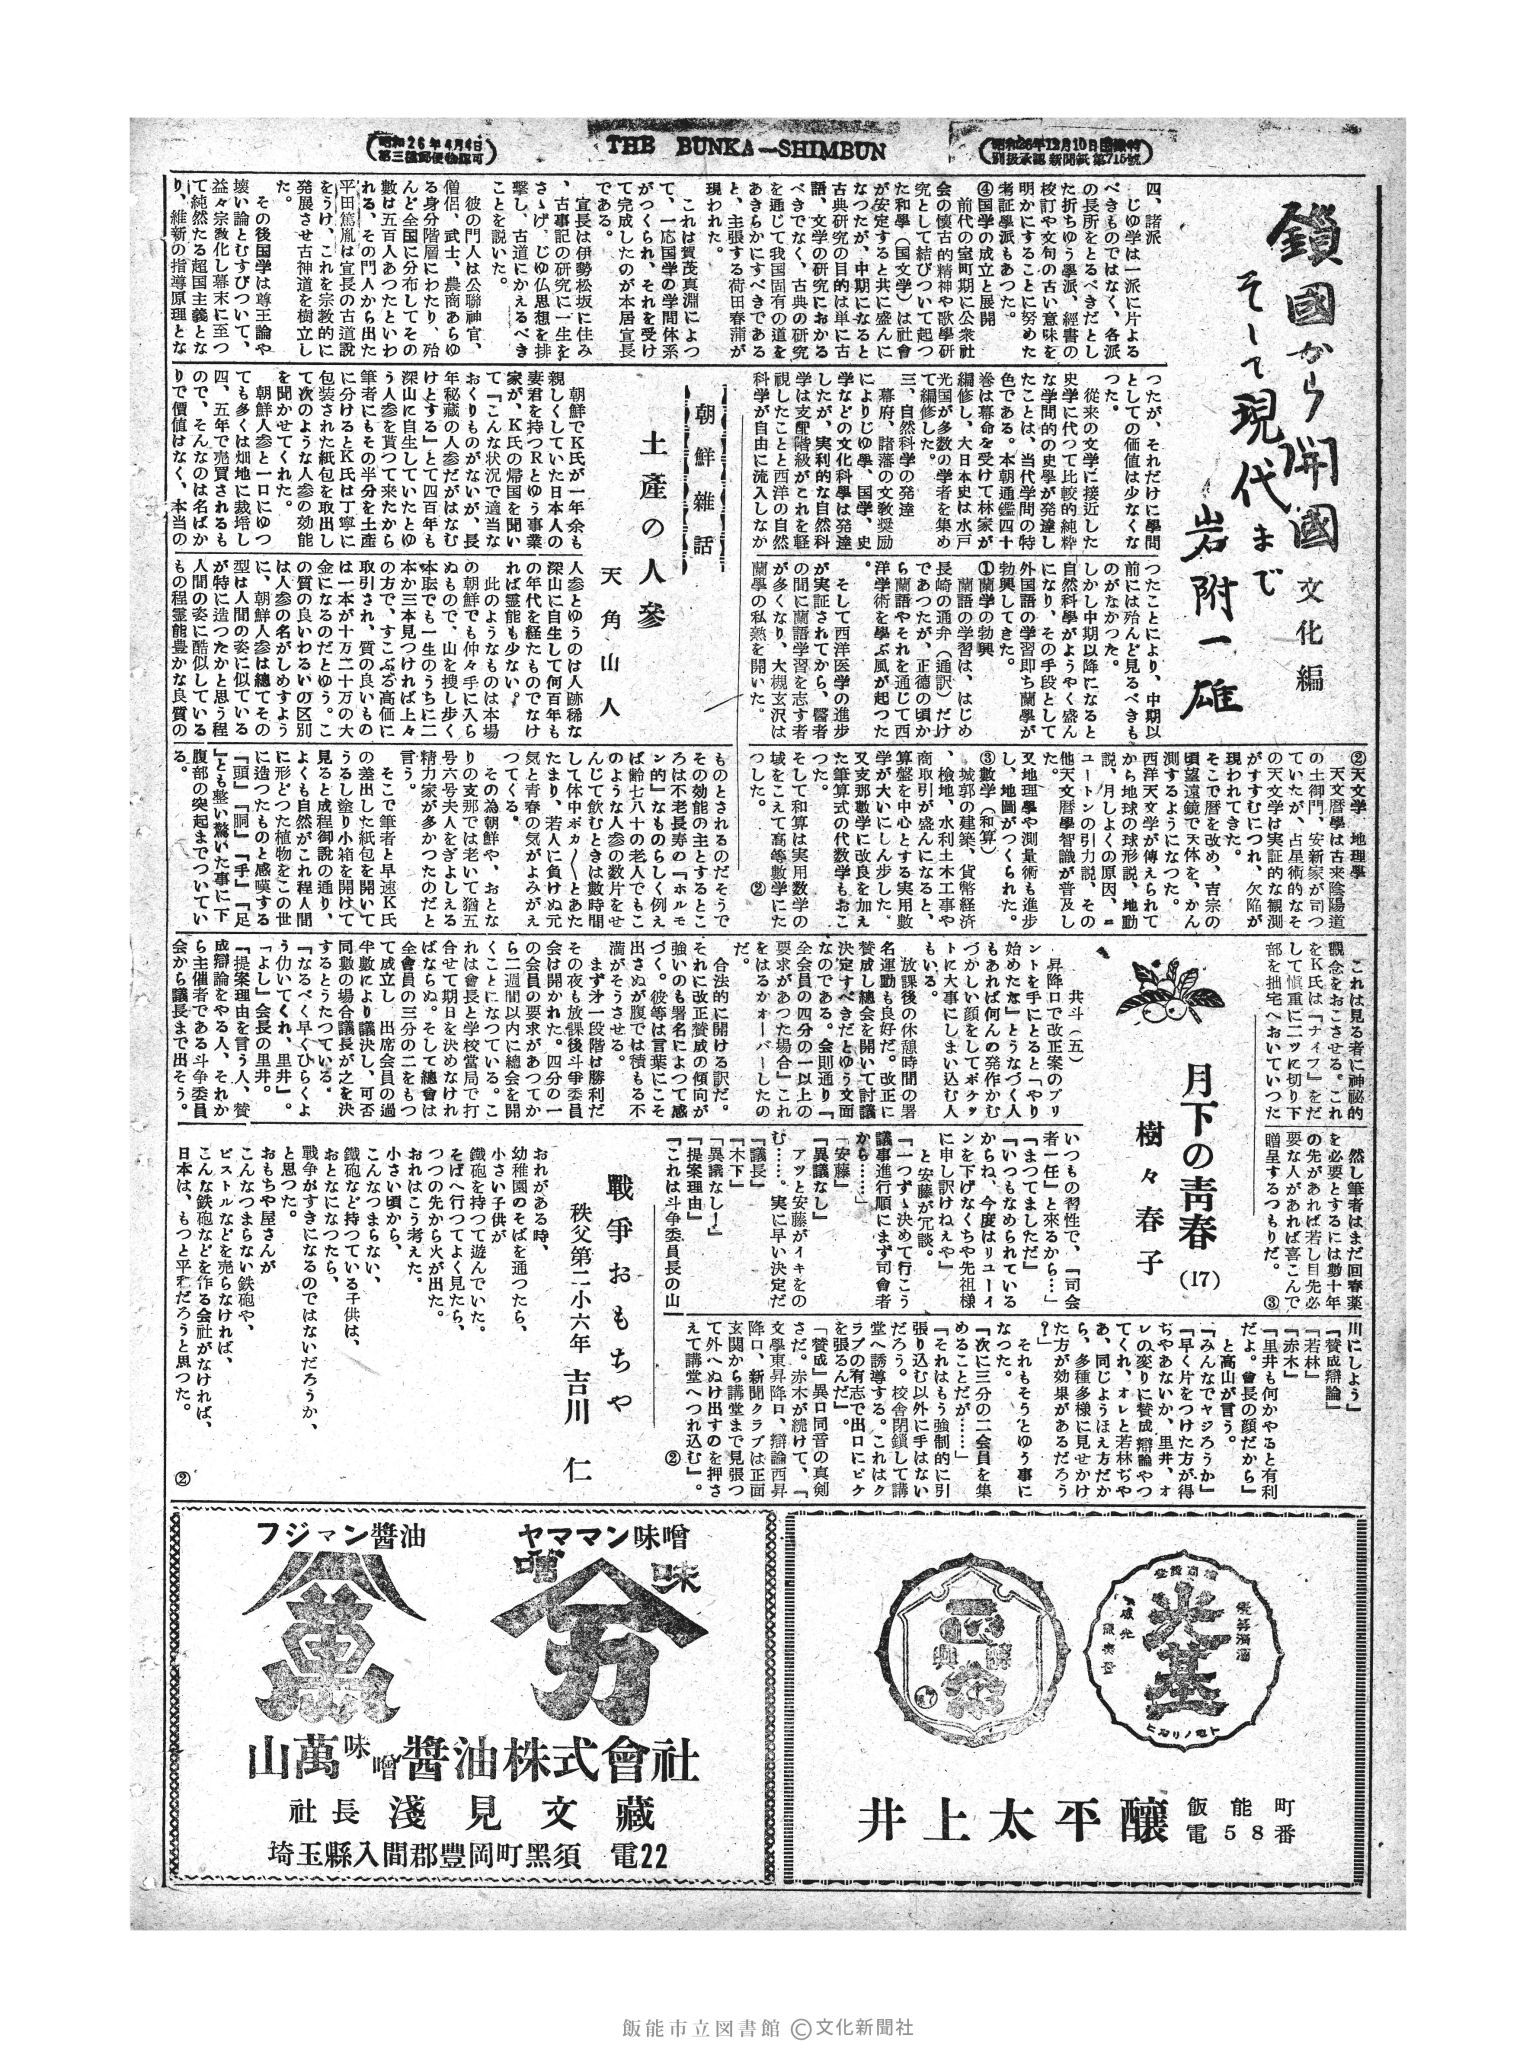 昭和26年4月4日
第三種郵便物認可
THE BUNKA—SHIMBUN
昭和26年12月10日国鉄特
別扱承認新聞紙第715號
鎖國から開國
そして現代まで
文化編
岩附一雄
四、諸派
じゆ学は一派に片よる
べきものではなく、各派
の長所をとるべきだとし
た折ちゆう學派、經書の
校訂や文句の古い意味を
明かにすることに努めた
考証學派もあつた。
④国学の成立と展開
前代の室町期に公衆社
会の懐古的精神や歌學研
究として結びついて起つ
た和學（国文学）は社會
が安定すると共に盛んに
なつたが、中期になると
古典研究の目的は単に古
語、文学の研究におかる
べきでなく、古典の研究
を通じて我国固有の道を
あきらかにすべきである
と、主張する荷田春蒲が
現われた。
これは賀茂真淵によつ
て、一応国学の学間体系
がつくられ、それを受け
て完成したのが本居宣長
である。
宣長は伊勢松坂に住み
、古事記の研究に一生を
さゝげ、じゆ仏思想を排
撃し、古道にかえるべき
ことを説いた。
彼の門人は公聯神官、
僧侶、武士、農商あらゆ
る身分階層にわたり、殆
んど全国に分布してその
数は五百人あつたといわ
れる、その門人から出た
平田篤胤は宣長の古道説
をうけ、これを宗教的に
発展させ古神道を樹立し
た。
その後国学は尊王論や
壊い論とむすびついて、
益々宗教化し幕末に至つ
て純然たる超国主義とな
り、維新の指導原理とな
つたが、それだけに學間
としての価値は少なくな
つた。
従来の文学に接近した
史学に代つて比較的純粋
な学問的の史學が発達し
たことは、当代学問の特
色である。本朝通鑑四十
巻は幕命を受けて林家が
編修し、大日本史は水戸
光国が多数の学者を集め
て編修した。
三、自然科学の発達
幕府、諸藩の文教奨励
によりじゆ學、国学、史
学などの文化科學は発達
したが、実利的な自然科
学は支配階級がこれを軽
視したことと西洋の自然
科学が自由に流入しなか
つたことにより、中期以
前には殆んど見るべきも
のがなかつた。
しかし中期以降になると
自然科學がようやく盛ん
になり、その手段として
外国語の学習即ち蘭學が
勃興してきた。
①蘭学の勃興
蘭語の学習は、はじめ
長崎の通弁（通訳）だけ
であつたが、正德の頃か
ら蘭語やそれを通じて西
洋学術を學ぶ風が起つた
。
そして西洋医学の進步
が実証されてから、醫者
の間に蘭語学習を志す者
が多くなり、大槻玄沢は
蘭學の私熟を開いた。
②天文学　地理學
天文暦學は古来陰陽道
の土御門、安新家が司つ
ていたが、占星術的なそ
の天文学は実証的な観測
がすすむにつれ、欠陥が
現われてきた。
そこで暦を改め、吉宗の
頃望遠鏡で天体を、かん
測するようになつた。
西洋天文學が傳えられて
から地球の球形説、地動
説、月しよくの原因、ニ
ュートンの引力説、その
他天文暦學智識が普及し
た。
又地理學や測量術も進步
し、地圖がつくられた。
③数学（和算）
城郭の建築、貨幣経済
、檢地、水利土木工事や
商取引が盛んになると、
算盤を中心とする実用數
学が大いにしん步した。
又支那數学に改良を加え
た筆算式の代数学もおこ
つた。
そして和算は実用数学の
域をこえて高等數学にた
つした。
②
朝鮮雜話
土產の人参
天角山人
朝鮮でK氏が一年余も
親しくしていた日本人の
妻君を持つRとゆう事業
家が、K氏の帰国を聞い
て『こんな状況で適当な
おくりものがないが、長
年秘蔵の人参だがはなむ
けとする』とて四百年も
深山に自生していたとゆ
う人参を貰つて来たから
筆者にもその半分を土產
に分けるとK氏は丁寧に
包装された紙包を取出し
て次のような人参の効能
を聞かせてくれた。
朝鮮人参と一口にゆつ
ても多くは畑地に栽培し
四、五年で売買されるも
ので、そんなのは名ばか
りで價値はなく、本当の
人参とゆうのは人跡稀な
深山に自生して何百年も
の年代を経たものでなけ
れば霊能も少ない。
此のようなものは本場
の朝鮮でも仲々手に入ら
ぬもので、山を捜し歩く
本販でも一生のうちに二
本か三本見つければ上々
の方で、すこぶる高価に
取引され、質の良いもの
は一本が十万二十万の大
金になるのだとゆう。こ
の質の良いわるいの区別
は人参の名がしめすよう
に、朝鮮人参は總てその
型は人間の姿に似ている
が特に造つたかと思う程
人間の姿に酷似している
もの程霊能豊かな良質の
ものとされるのだそうで
その効能の主とするとこ
ろは不老長寿の『ホルモ
ン的』なものらしく例え
ば齢七八十の老人でもこ
のような人参の数片をせ
んじて飲むときは數時間
して体中ポカ〱とあた
たまり、若人に負けぬ元
気と青春の気がよみがえ
つてくる。
その為朝鮮や、おとな
りの支那では老いて猶五
号六号夫人をぎよしえる
精力家が多かつたのだと
言う。
そこで筆者と早速K氏
の差出した紙包を開いて
うるし塗り小箱を開けて
見ると成程御說の通り、
よくも自然がこれ程人間
に形どつた植物をこの世
に造つたものと感嘆する
『頭』『胴』『手』『足
』とも整い驚いた事に下
腹部の突起までついてい
る。
これは見る者に神祕的
觀念をおこさせる。これ
をK氏は『ナイフ』をだ
して慎重に二ツに切り下
部を拙宅へおいていつた
然し筆者はまだ回春薬
を必要とするには數十年
の先があれば若し目先必
要な人があれば喜こんで
贈呈するつもりだ。
③
月下の青春　(17)
樹々春子
共斗（五）
昇降口で改正案のプリ
ントを手にとると「やり
始めたな』とうなづく人
もあれば何んの発作かむ
づかしい顔をしてポケッ
トに大事にしまい込む人
もいる。
放課後の休憩時間の署
名運動も良好だ。改正に
賛成し總会を開いて討議
決定すべきだとゆう文面
なのである。会則通り『
全会員の四分の一以上の
要求があつた場合』これ
をはるかオーバーしたの
だ。
合法的に開ける訳だ。
それに改正賛成の傾向が
強いのも署名によつて感
づく。彼等は言葉にこそ
出さぬが腹では積もる不
満がそうさせる。
まず才一段階は勝利だ
その夜も放課後斗爭委員
会は開かれた。四分の一
の会員の要求があつてか
ら二週間以内に總会を開
くことになつている。こ
れは會長と学校當局で打
合せて期日を決めなけれ
ばならぬ。そして總會は
全會員の三分の二をもつ
て成立し　出席会員の過
半數により議決し、可否
同數の場合議長が之を決
するとうたつている。
『なるべく早くひらくよ
う仂いてくれ、里井』。
『よし』会長の里井。
『提案理由を言う人、賛
成辯論をやる人、それか
ら主催者である斗争委員
会から議長まで出そう。
いつもの習性で、『司会
者一任』と來るから…」
『まつてましただ』
『いつもなめられている
からね、今度はリユーイ
ンを下げなくちや先祖様
に申し訳けねえや』
と安藤が冗談。
『一つずゝ決めて行こう
議事進行順にまず司會者
から……』
『安藤』
『異議なし』
アッと安藤がイキをの
む……。実に早い決定だ
『議長』
『木下』
『異議なし！』
『提案理由』
『これは斗争委員長の山
川にしよう』
『賛成辯論』
『若林』
『赤木』
『里井も何かやると有利
だよ。會長の顔だから』
と高山が言う。
『みんなでヤジろうか』
『早く片をつけた方が得
ぢやあないか、里井、オ
レの変りに賛成辯論やつ
てくれ、オレと若林ぢや
あ、同じようほえ方だか
ら、多種多様に見せかけ
た方が効果があるだろう
？』
それもそうとゆう事に
なつた。
『次に三分の二会員を集
めることだが……』
『それはもう強制的に引
張り込む以外に手はない
だろう。校舎閉鎖して講
堂へ誘導する。これはク
ラブの有志で出口にピケ
を張るんだ』。
『賛成』異口同音の真剣
さだ。赤木が続けて、『
文學東昇降口、辯論西昇
降口、新聞クラブは正面
玄関から講堂まで見張つ
て外へぬけ出すのを押さ
えて講堂へつれ込む』。
②
戰爭おもちや
秩父第二小六年　吉川　仁
おれがある時、
幼稚園のそばを通つたら、
小さい子供が
鐵砲を持つて遊んでいた。
そばへ行つてよく見たら、
つつの先から火が出た。
おれはこう考えた。
小さい頃から、
こんなつまらない、
鐵砲など持つている子供は、
おとなになつたら、
戰争がすきになるのではないだろうか、
と思つた。
おもちや屋さんが
こんなつまらない鉄砲や、
ピストルなどを売らなければ、
こんな鉄砲などを作る会社がなければ、
日本は、もつと平和だろうと思つた。
②
フジマン醬油
ヤママン味噌
味噌
万
萬
山萬味噌醬油株式會社
社長　淺見文藏
埼玉縣入間郡豊岡町黑須　電22
光基
正宗
井上太平釀
飯能町
電58番
飯能市立図書館 ©文化新聞社